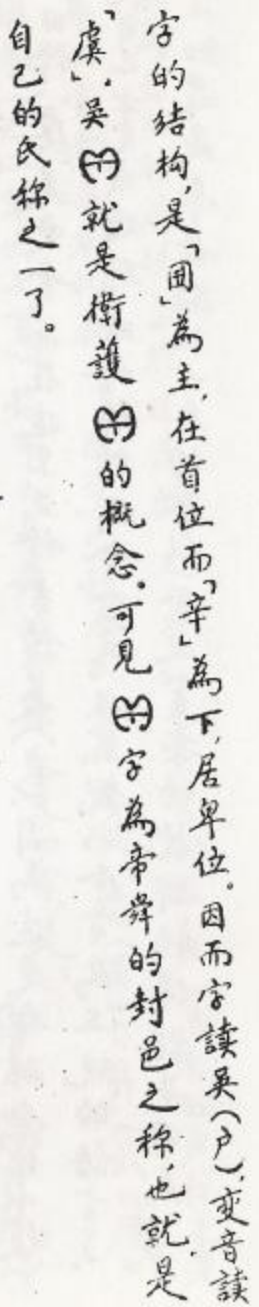 字的结构，是「囲」為主，在首位而「辛」為下，居卑位。因而字讀吳（戶），变音讀
「虞」。吳就是衛護的概念。可見字為帝舜的封邑之称，也就是
自己的氏称之一了。